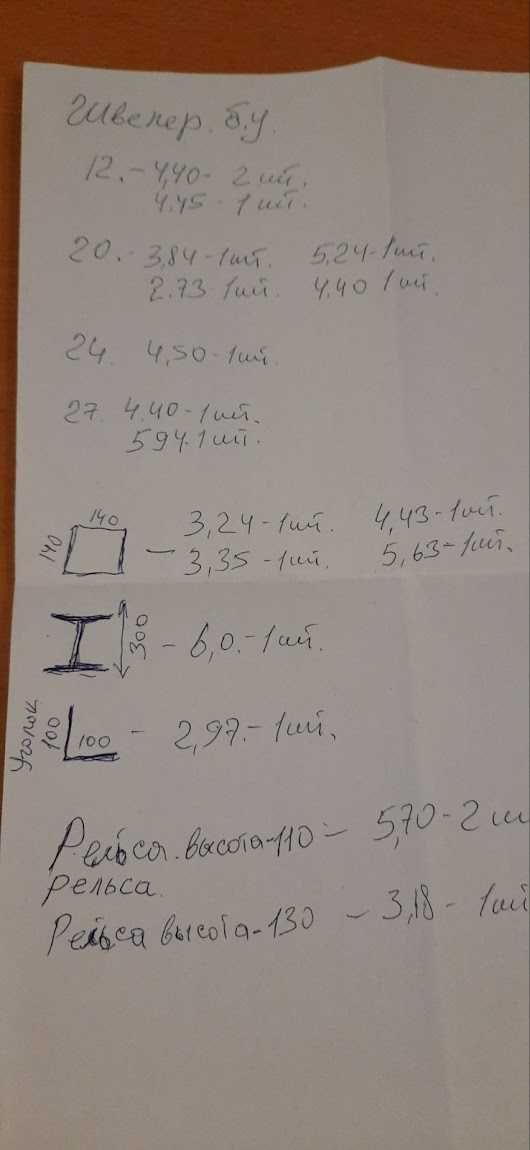 Швелер. б.у.
12. - 4,40 - 2 шт.
4.45 - 1 шт.
20. - 3,84 - 1шт. 5,24 - 1шт.
2.73 - 1шт. 4.40 1шт.
24. 4,50 - 1шт.
27. 4.40 - 1шт.
594. 1шт.
140
140 — 3,24 - 1шт. 4,43 - 1шт.
3,35 - 1шт. 5,63 - 1шт.
300 - 6,0. - 1шт.
Уголок 100 100 - 2,97. - 1шт.
Рельса. высота - 110 - 5,70 - 2 ш
рельса.
Рельса высота - 130 - 3,18 - 1шт